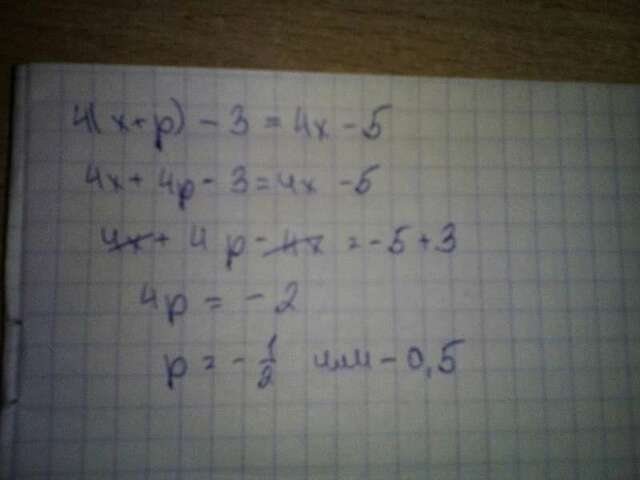 4(x+p) - 3 = 4x - 5
4x + 4p - 3 = 4x - 5
4x + 4p - 4x = -5 + 3
4p = -2
p = - 1/2 или - 0,5